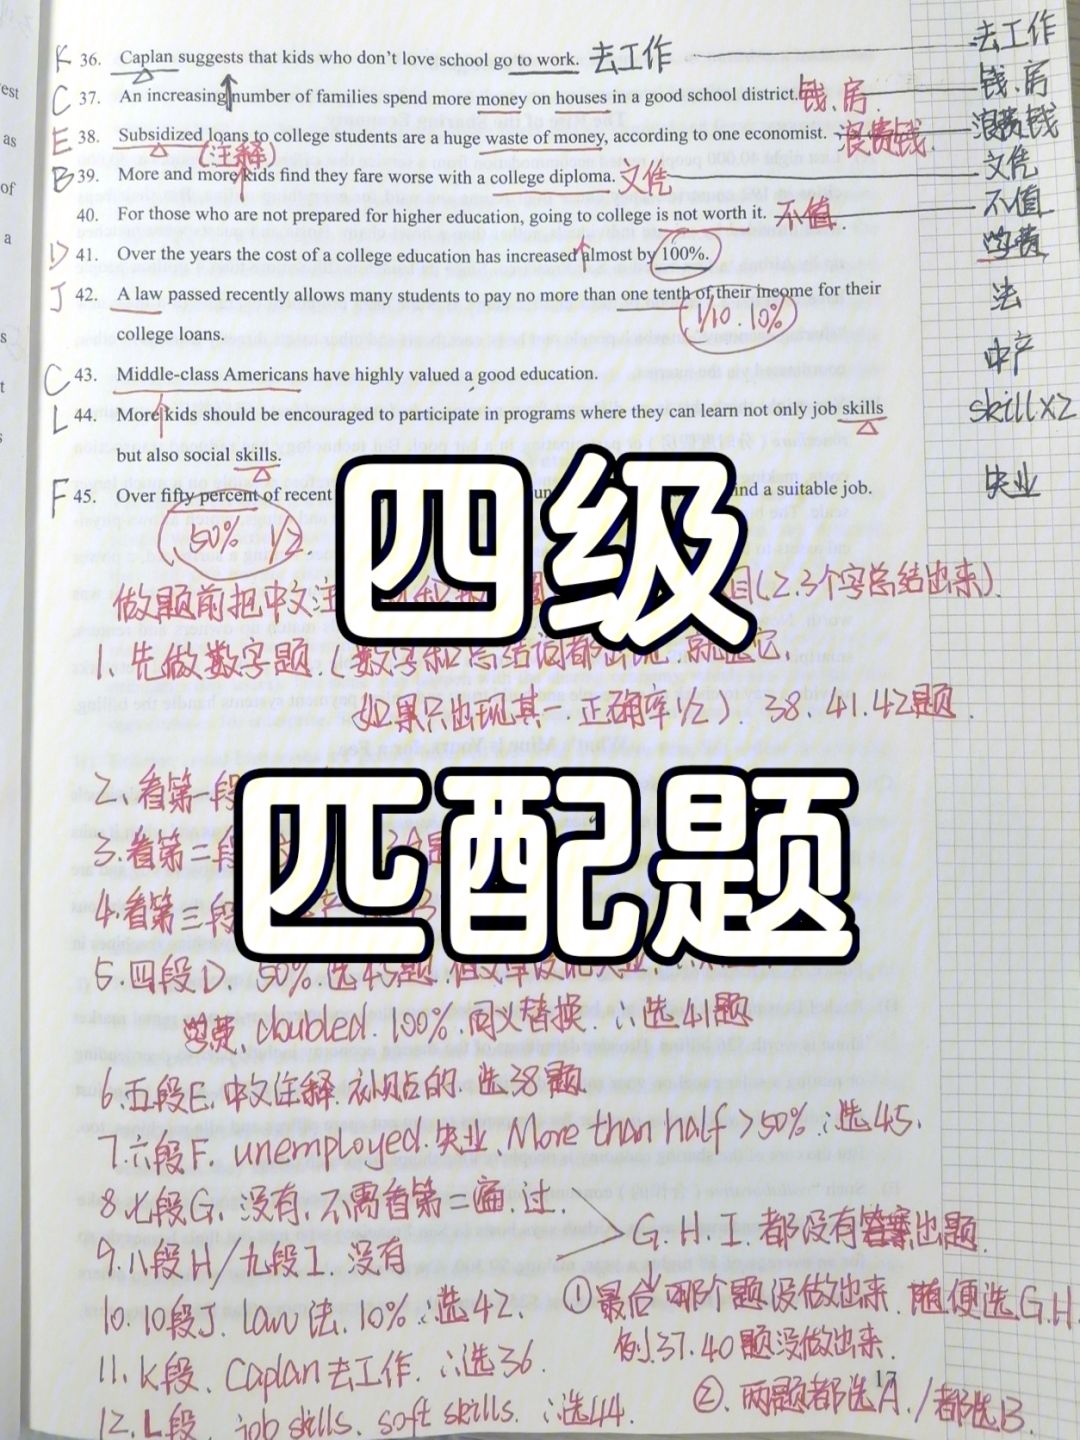 K 36. Caplan suggests that kids who don't love school go to work. 去工作 去工作
C 37. An increasing number of families spend more money on houses in a good school district. 钱、房. 钱、房
E 38. Subsidized loans to college students are a huge waste of money, according to one economist. 浪费钱. 浪费钱
(注释)
B 39. More and more kids find they fare worse with a college diploma. 文凭 文凭
40. For those who are not prepared for higher education, going to college is not worth it. 不值. 不值
D 41. Over the years the cost of a college education has increased almost by 100%. 学费
J 42. A law passed recently allows many students to pay no more than one tenth of their income for their 法
(1/10. 10%)
college loans.
中产
C 43. Middle-class Americans have highly valued a good education.
L 44. More kids should be encouraged to participate in programs where they can learn not only job skills skill×2
but also social skills.
F 45. Over fifty percent of recent ind a suitable job. 失业
(50% 1/2.
四级
做题前把中文注 目(2.3个字总结出来).
1. 先做数字题.(数字和总结词都出现.就选它、
如果只出现其一.正确率1/2). 38、41.42题.
2、看第一段
匹配题
3.看第二段
4.看第三段
5.四段D、50%.选45题.
学费、doubled. 100%.同义替换. ∴选41题
6.五段E.中文注释.补贴的.选38题
7.六段F. unemployed.失业、More than half >50% ∴选45.
8.七段G.没有.不需看第二遍.过.
G. H. I. 都没有答案出题.
9.八段H/九段I.没有
10. 10段J. law 法. 10% ∴选42.
①最后哪个题没做出来.随便选G.H
例.37.40题没做出来.
11. K段、Caplan 去工作. ∴选36.
17
②.两题都选A./都选B.
12. L段. job skills. soft skills. ∴选44.